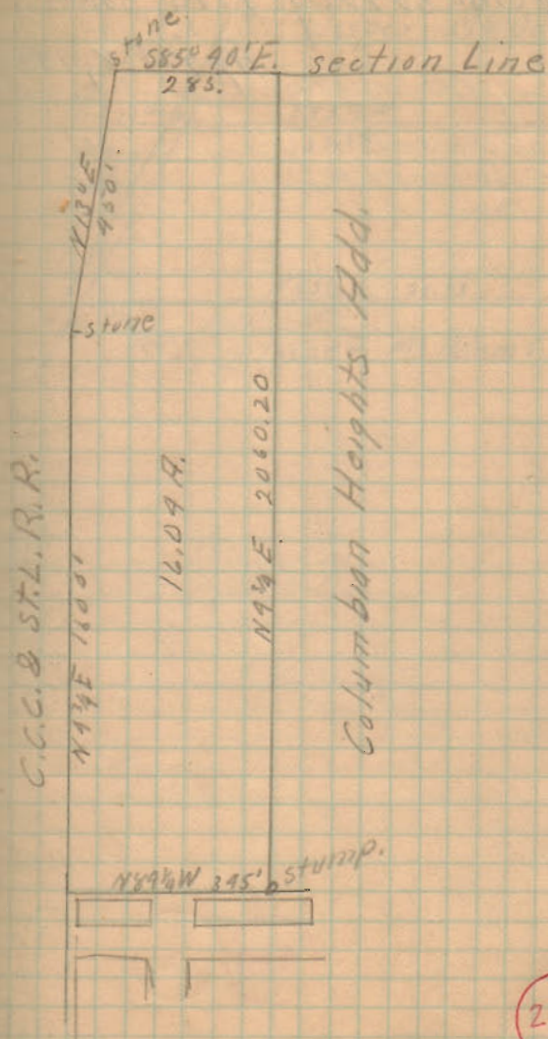 stone.
S85° 40' E. section Line
283.
N13°E
450'.
stone
C.C.C. & ST. L. R. R.
N4¾E 1600'
16.09 A.
N4¾E 2060.20
Columbian Heights Add.
N89¼W 345' stump.
2